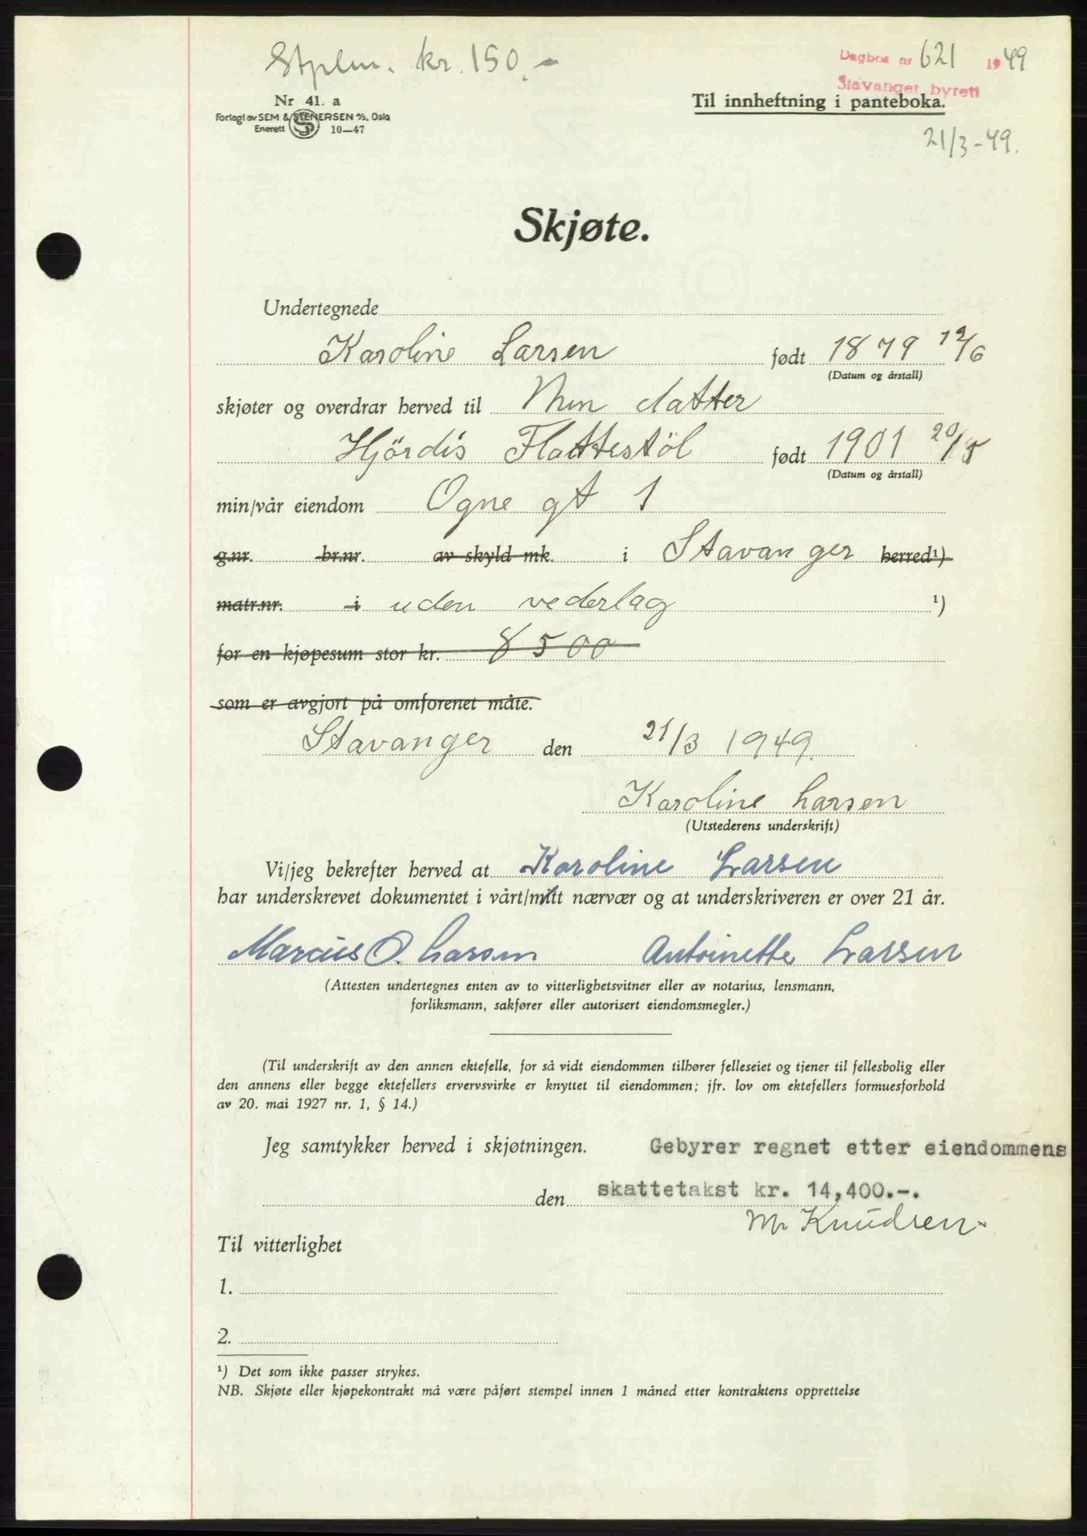 Stplm. kr. 150.-
Dagbok nr 621 1949
Stavanger byrett
Nr 41. a
Forlagt av SEM & STENERSEN A/S, Oslo
Enerett S 10—47
Til innheftning i panteboka.
21/3-49.
Skjøte.
Undertegnede
Karoline Larsen født 1879 12/6
(Datum og årstall)
skjøter og overdrar herved til Min datter
Hjördis Flattestöl født 1901 20/5
(Datum og årstall)
min/vår eiendom Ogne gt 1
g.nr. br.nr. av skyld mk. i Stavanger herred¹)
matr.nr. i uden vederlag ¹)
for en kjøpesum stor kr. 8500
som er avgjort på omforenet måte.
Stavanger den 21/3 1949.
Karoline Larsen
(Utstederens underskrift)
Vi/jeg bekrefter herved at Karoline Larsen
har underskrevet dokumentet i vårt/mitt nærvær og at underskriveren er over 21 år.
Marcus O. Larsen Antoinette Larsen
(Attesten undertegnes enten av to vitterlighetsvitner eller av notarius, lensmann,
forliksmann, sakfører eller autorisert eiendomsmegler.)
(Til underskrift av den annen ektefelle, for så vidt eiendommen tilhører felleseiet og tjener til fellesbolig eller
den annens eller begge ektefellers ervervsvirke er knyttet til eiendommen; jfr. lov om ektefellers formuesforhold
av 20. mai 1927 nr. 1, § 14.)
Jeg samtykker herved i skjøtningen. Gebyrer regnet etter eiendommens
den skattetakst kr. 14,400.-.
Knudsen
Til vitterlighet
1.
2.
¹) Det som ikke passer strykes.
NB. Skjøte eller kjøpekontrakt må være påført stempel innen 1 måned etter kontraktens opprettelse